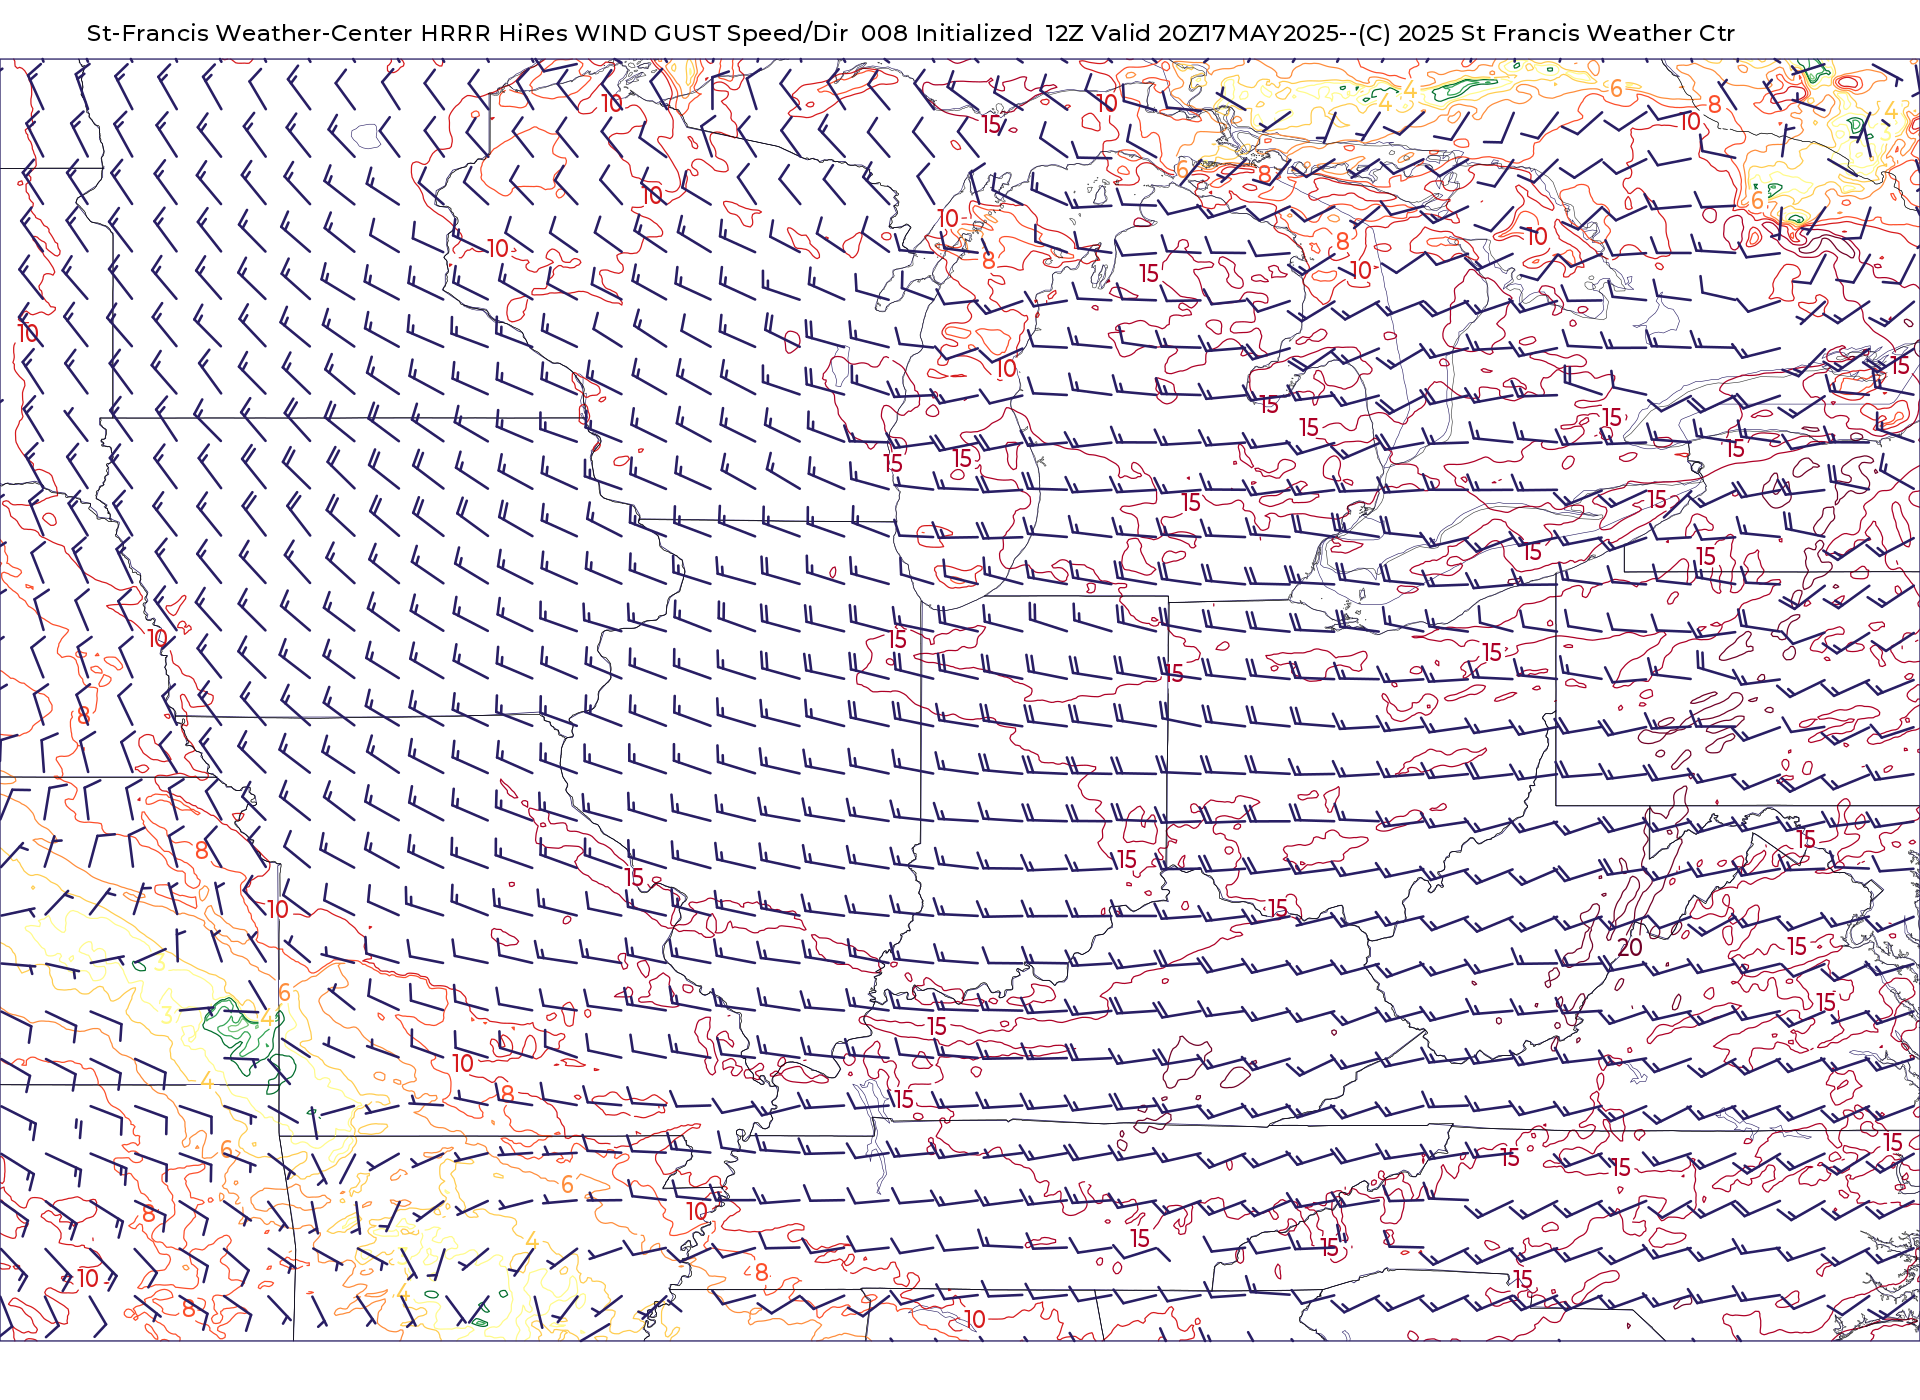 St-Francis Weather-Center HRRR HiRes WIND GUST Speed/Dir  008 Initialized  12Z Valid 20Z17MAY2025--(C) 2025 St Francis Weather Ctr
4
6
10
10
4
8
4
15
10
10
6
8
10
6
10
10
8
10
8
15
10
10
10
15
15
15
15
15
15
15
15
15
15
15
15
15
10
15
15
15
8
15
8
15
15
10
15
20
15
3
6
15
3
4
15
10
4
8
15
6
15
15
15
6
8
10
4
15
15
8
10
15
4
8
10